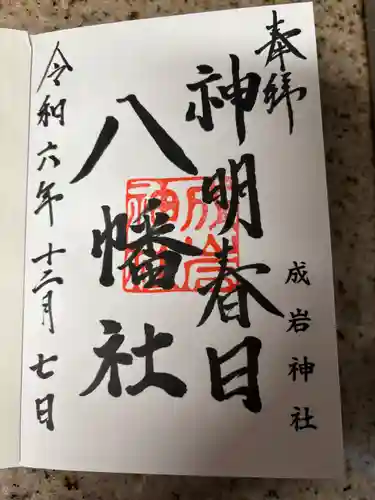 奉拝
成岩神社
神明春日
八幡社
成岩神社
令和六年十二月七日